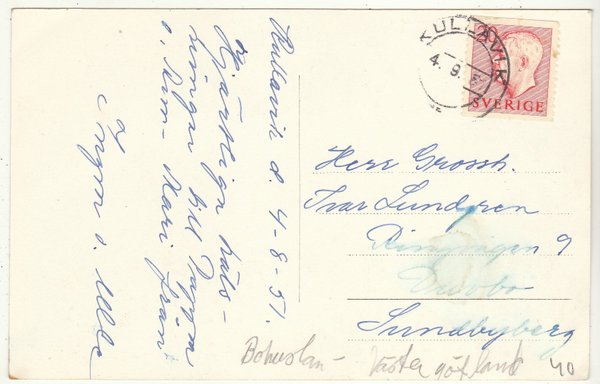 Kullavik d. 4-8-51.
Hjärtliga häls-
ningar till Pappa
o. Ann-Mari från
Inger o. Uebe
KULLAVIK
4.9.5
SVERIGE
Herr Grossh.
Ivar Lundgren
9
Duvbo
Sundbyberg
Bohuslän - Västergötland 40